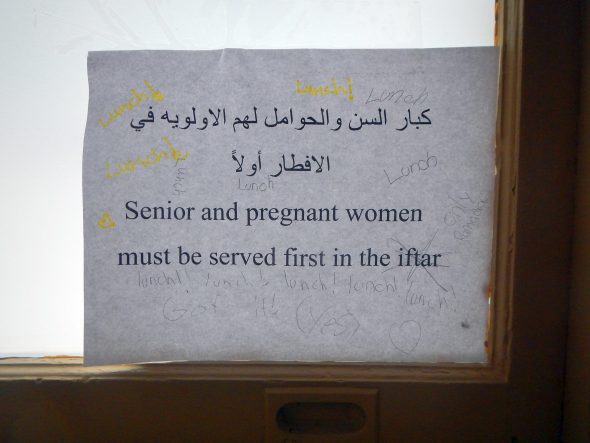 Lunch!
Lunch!
Lunch
كبار السن والحوامل لهم الاولويه في
Lunch!
الافطار أولاً
Lunch
Lunch
Lunch
Senior and pregnant women
only
Ramadan
must be served first in the iftar
lunch! lunch! lunch! lunch! lunch!
it's (Yes)